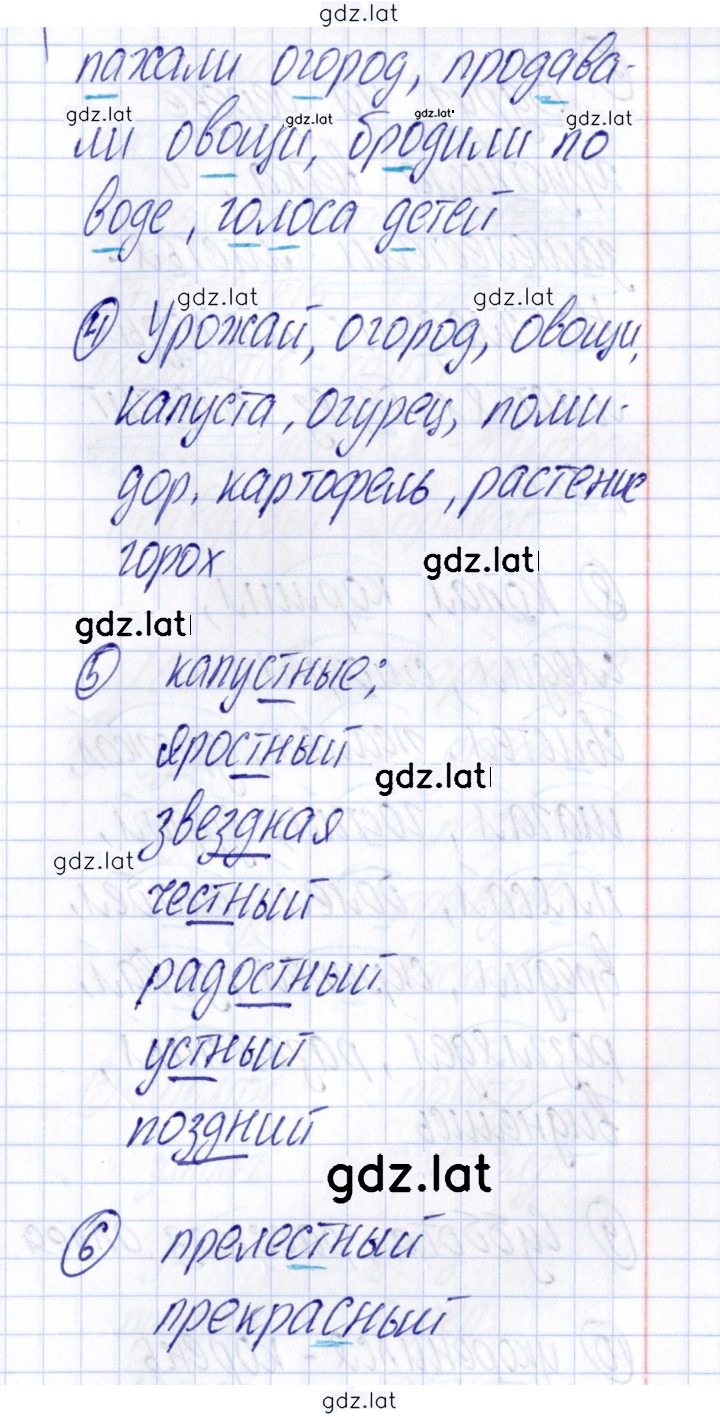 gdz.lat
пахали огород, продава-
gdz.lat gdz.lat gdz.lat gdz.lat
ли овощи, бродили по
воде, голоса детей
gdz.lat gdz.lat
4 Урожай, огород, овощи,
капуста, огурец, поми-
дор, картофель, растение
горох
gdz.lat
gdz.lat
5 капустные;
яростный
gdz.lat
звездная
gdz.lat
честный
радостный
устный
поздний
gdz.lat
6 прелестный
прекрасный
gdz.lat